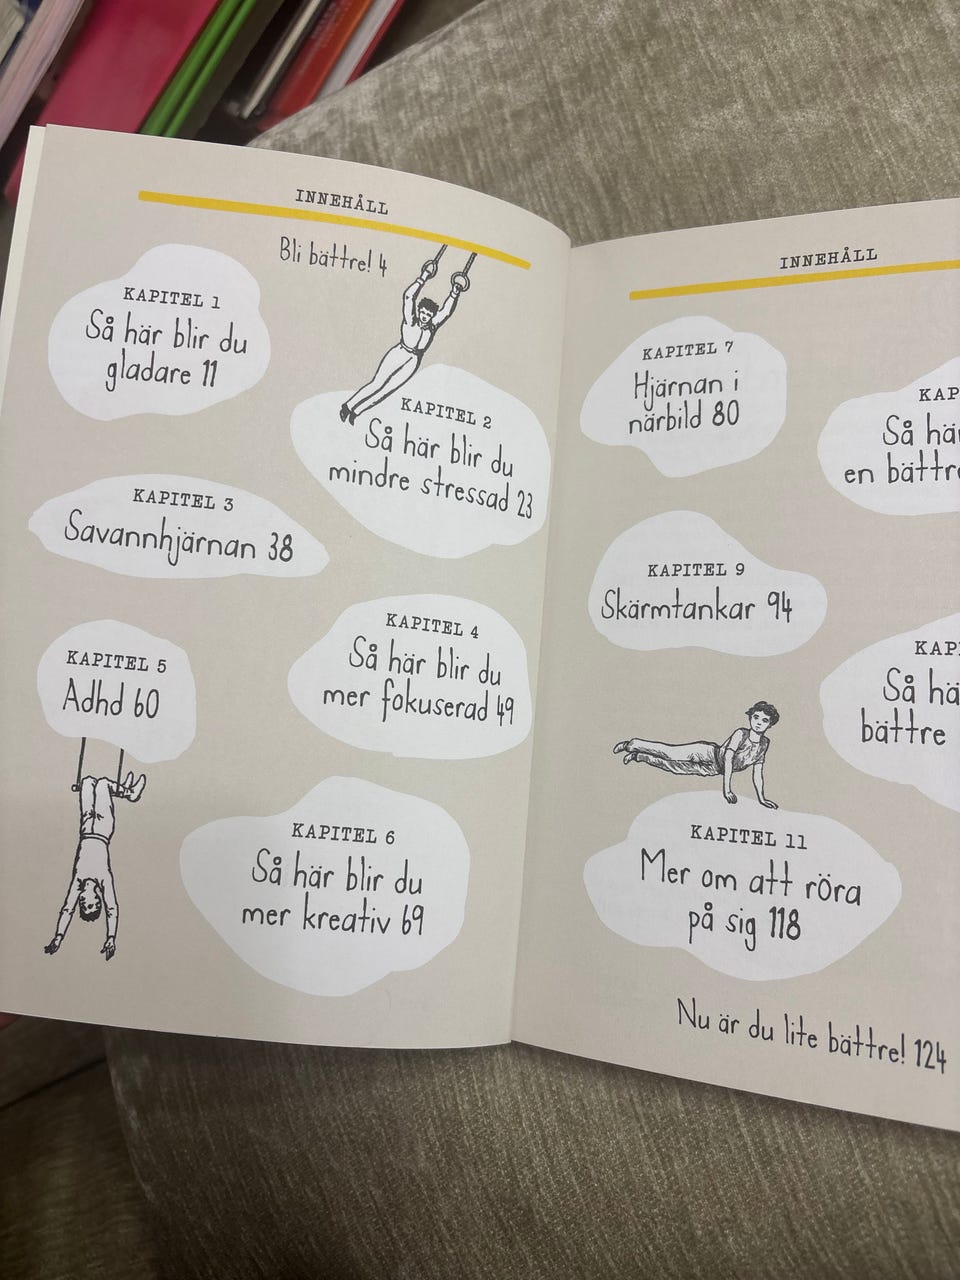 INNEHÅLL
Bli bättre! 4
KAPITEL 1
Så här blir du
gladare 11
KAPITEL 2
Så här blir du
mindre stressad 23
KAPITEL 3
Savannhjärnan 38
KAPITEL 4
Så här blir du
mer fokuserad 49
KAPITEL 5
Adhd 60
KAPITEL 6
Så här blir du
mer kreativ 69
INNEHÅLL
KAPITEL 7
Hjärnan i
närbild 80
KAP
Så hä
en bättr
KAPITEL 9
Skärmtankar 94
KAP
Så hä
bättre
KAPITEL 11
Mer om att röra
på sig 118
Nu är du lite bättre! 124